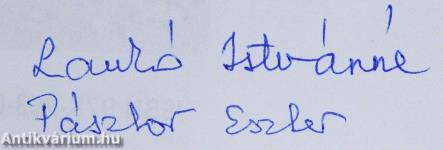 Laukó Istvánné
Pásztor Eszter
Antikvárium.hu